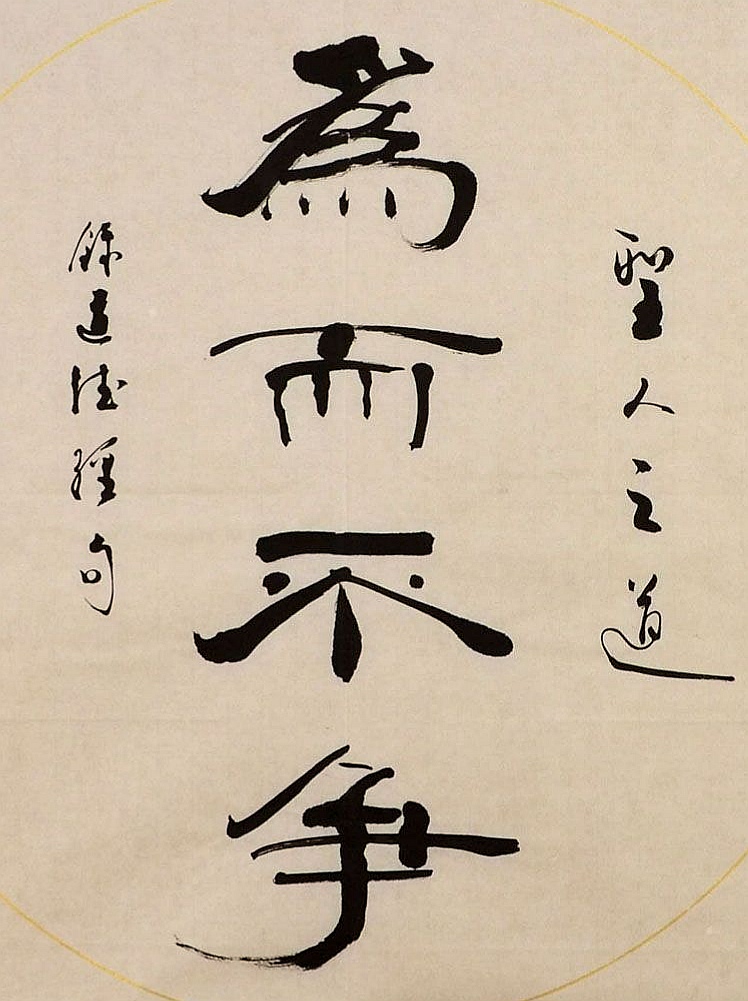 聖人之道
為而不爭
錄道德經句